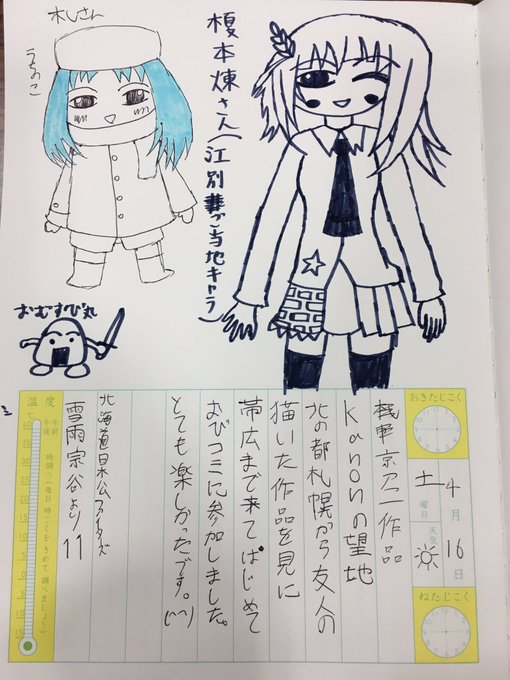 さん
うちのこ
榎本煉さん(江別ご当地キャラ)
おむすび丸
おきたじこく
4月16日
土曜日
天気
ねたじこく
京アニ作品
Kanonの望地
北の都札幌から友人の
描いた作品を見に
帯広まで来てはじめて
おびコミに参加しました。
とても楽しかったです。(^^)
北海道日本ハムファイターズ
雪雨宗谷より 11
温度
℃
午前
午後
時調べ(毎日時こくをきめて調べましょう)
40
35
30
25
20
15
10
5
0
5
10
15